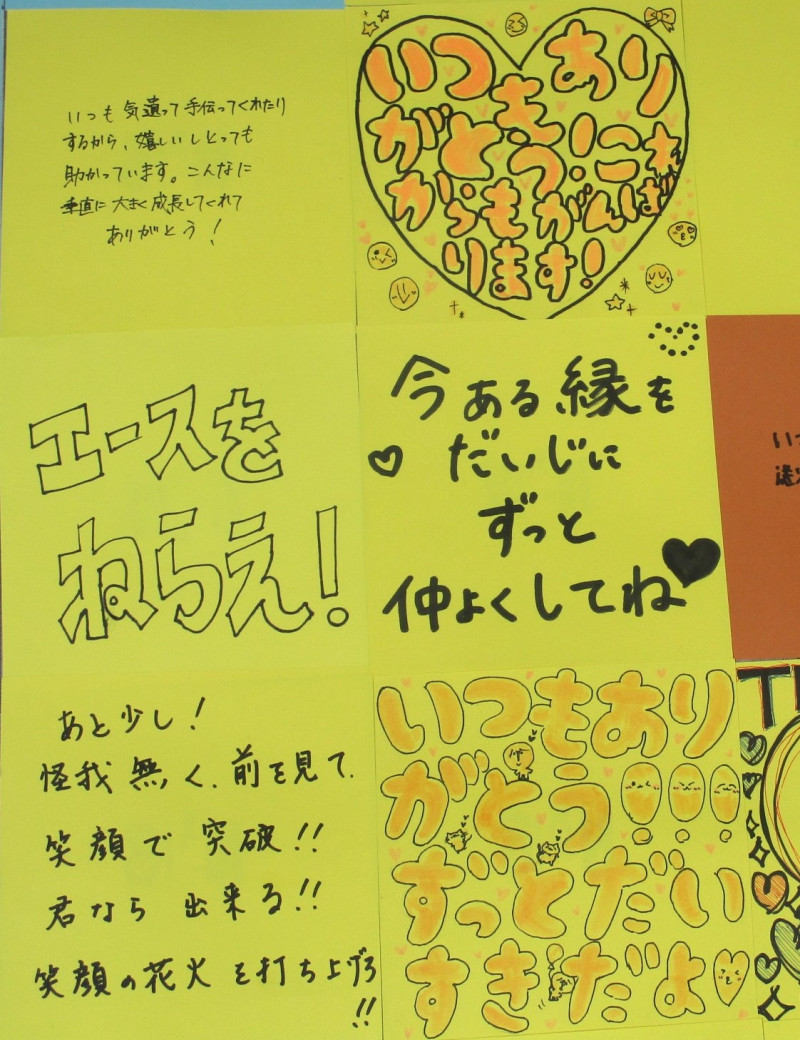 いつも 気遣って手伝ってくれたり
するから、嬉しいしとっても
助かっています。こんなに
垂直に大きく成長してくれて
ありがとう!
いつもあり
がとう!これ
からもがんば
ります!
エースを
ねらえ!
今ある縁を
だいじに
ずっと
仲よくしてね
いつ
あと少し!
怪我無く、前を見て、
笑顔で 突破!!
君なら 出来る!!
笑顔の花火を打ち上げろ
!!
いつもあり
がとう!!!
ずっとだい
すきだよ